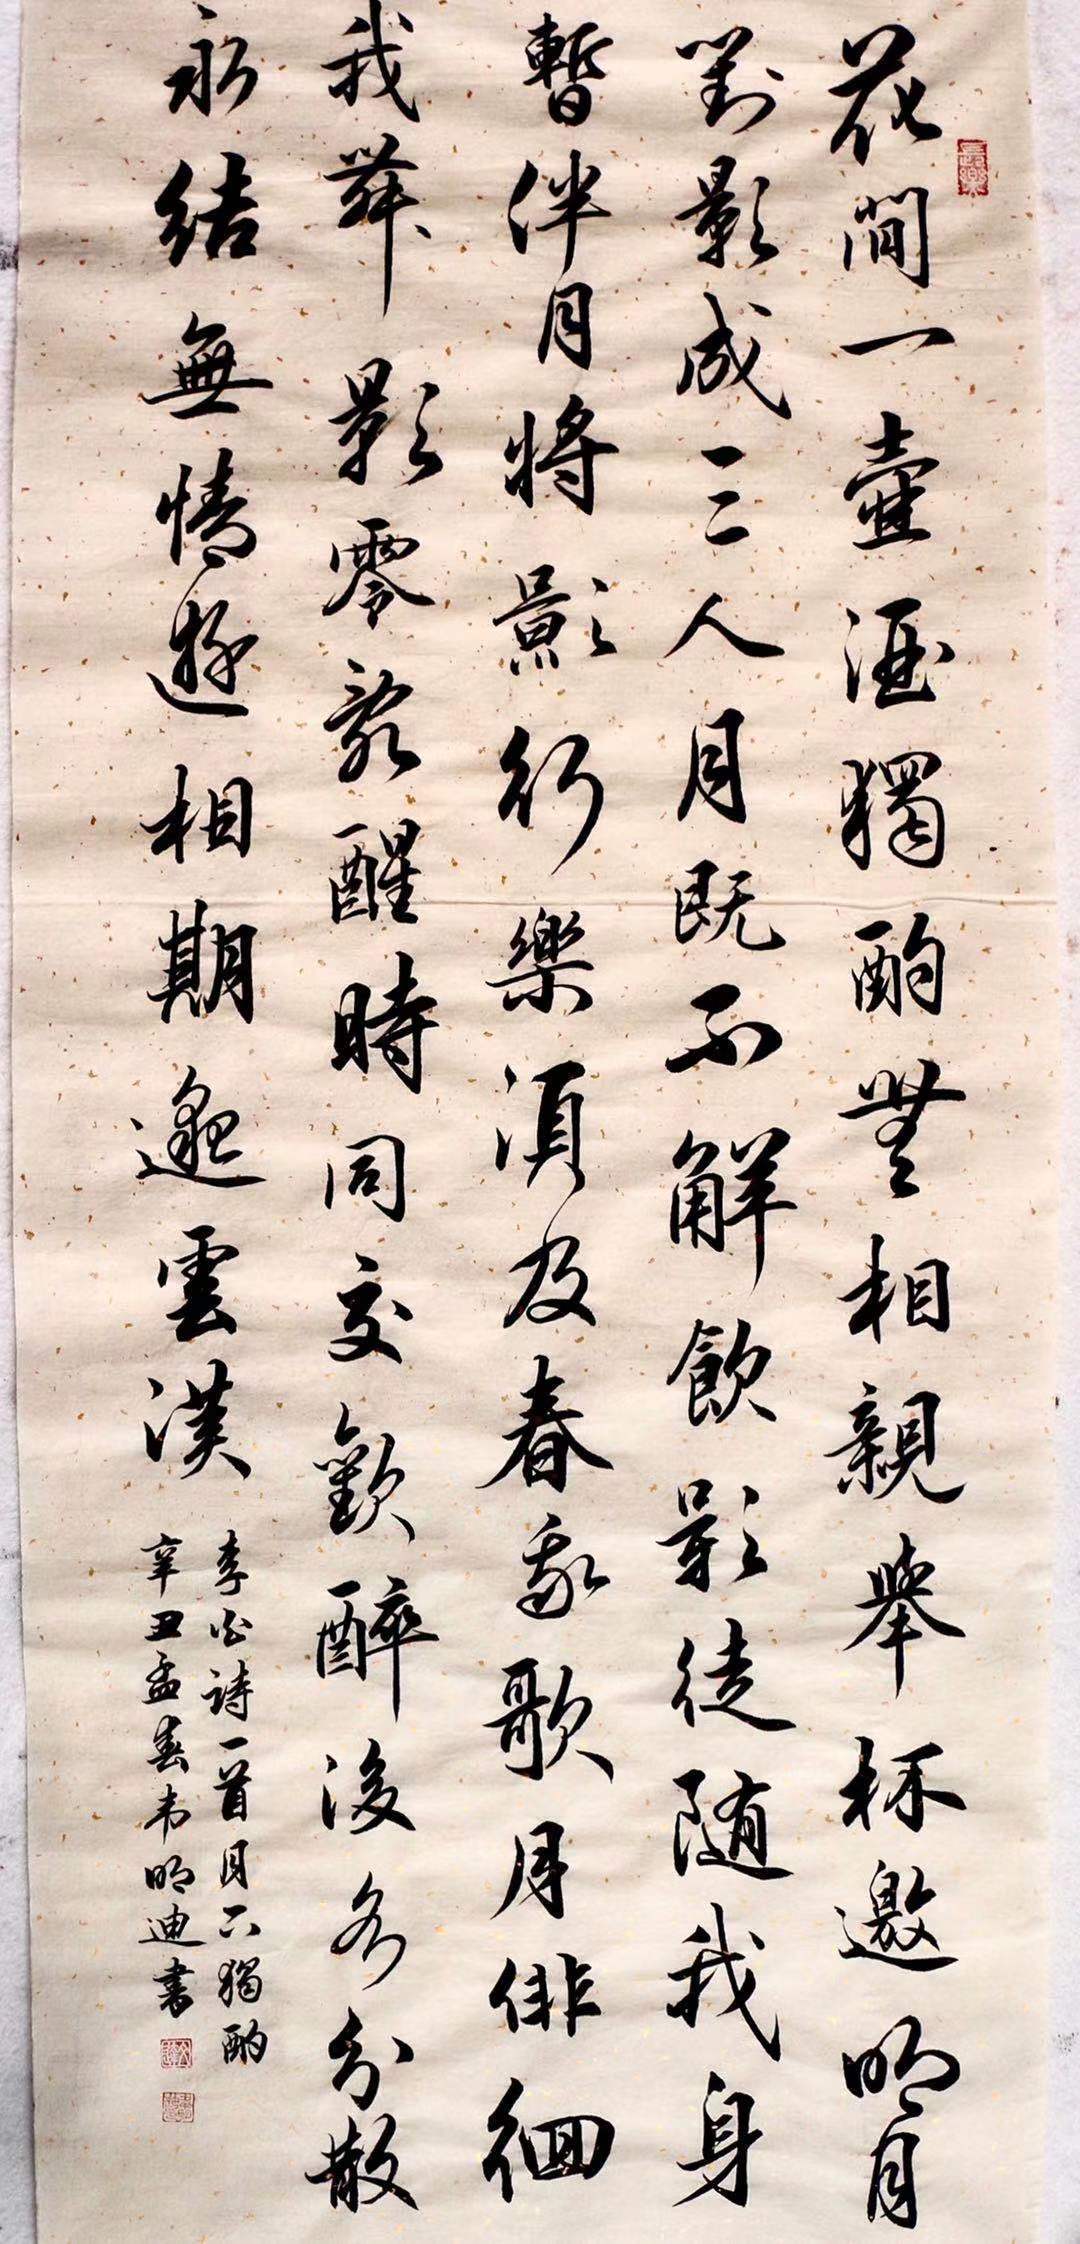 花間一壺酒獨酌無相親舉杯邀明月
對影成三人月既不解飲影徒隨我身
暫伴月將影行樂須及春我歌月徘徊
我舞影零亂醒時同交歡醉後各分散
永結無情遊相期邈雲漢
李白詩一首月下獨酌
辛丑孟春韦明迪書
長樂